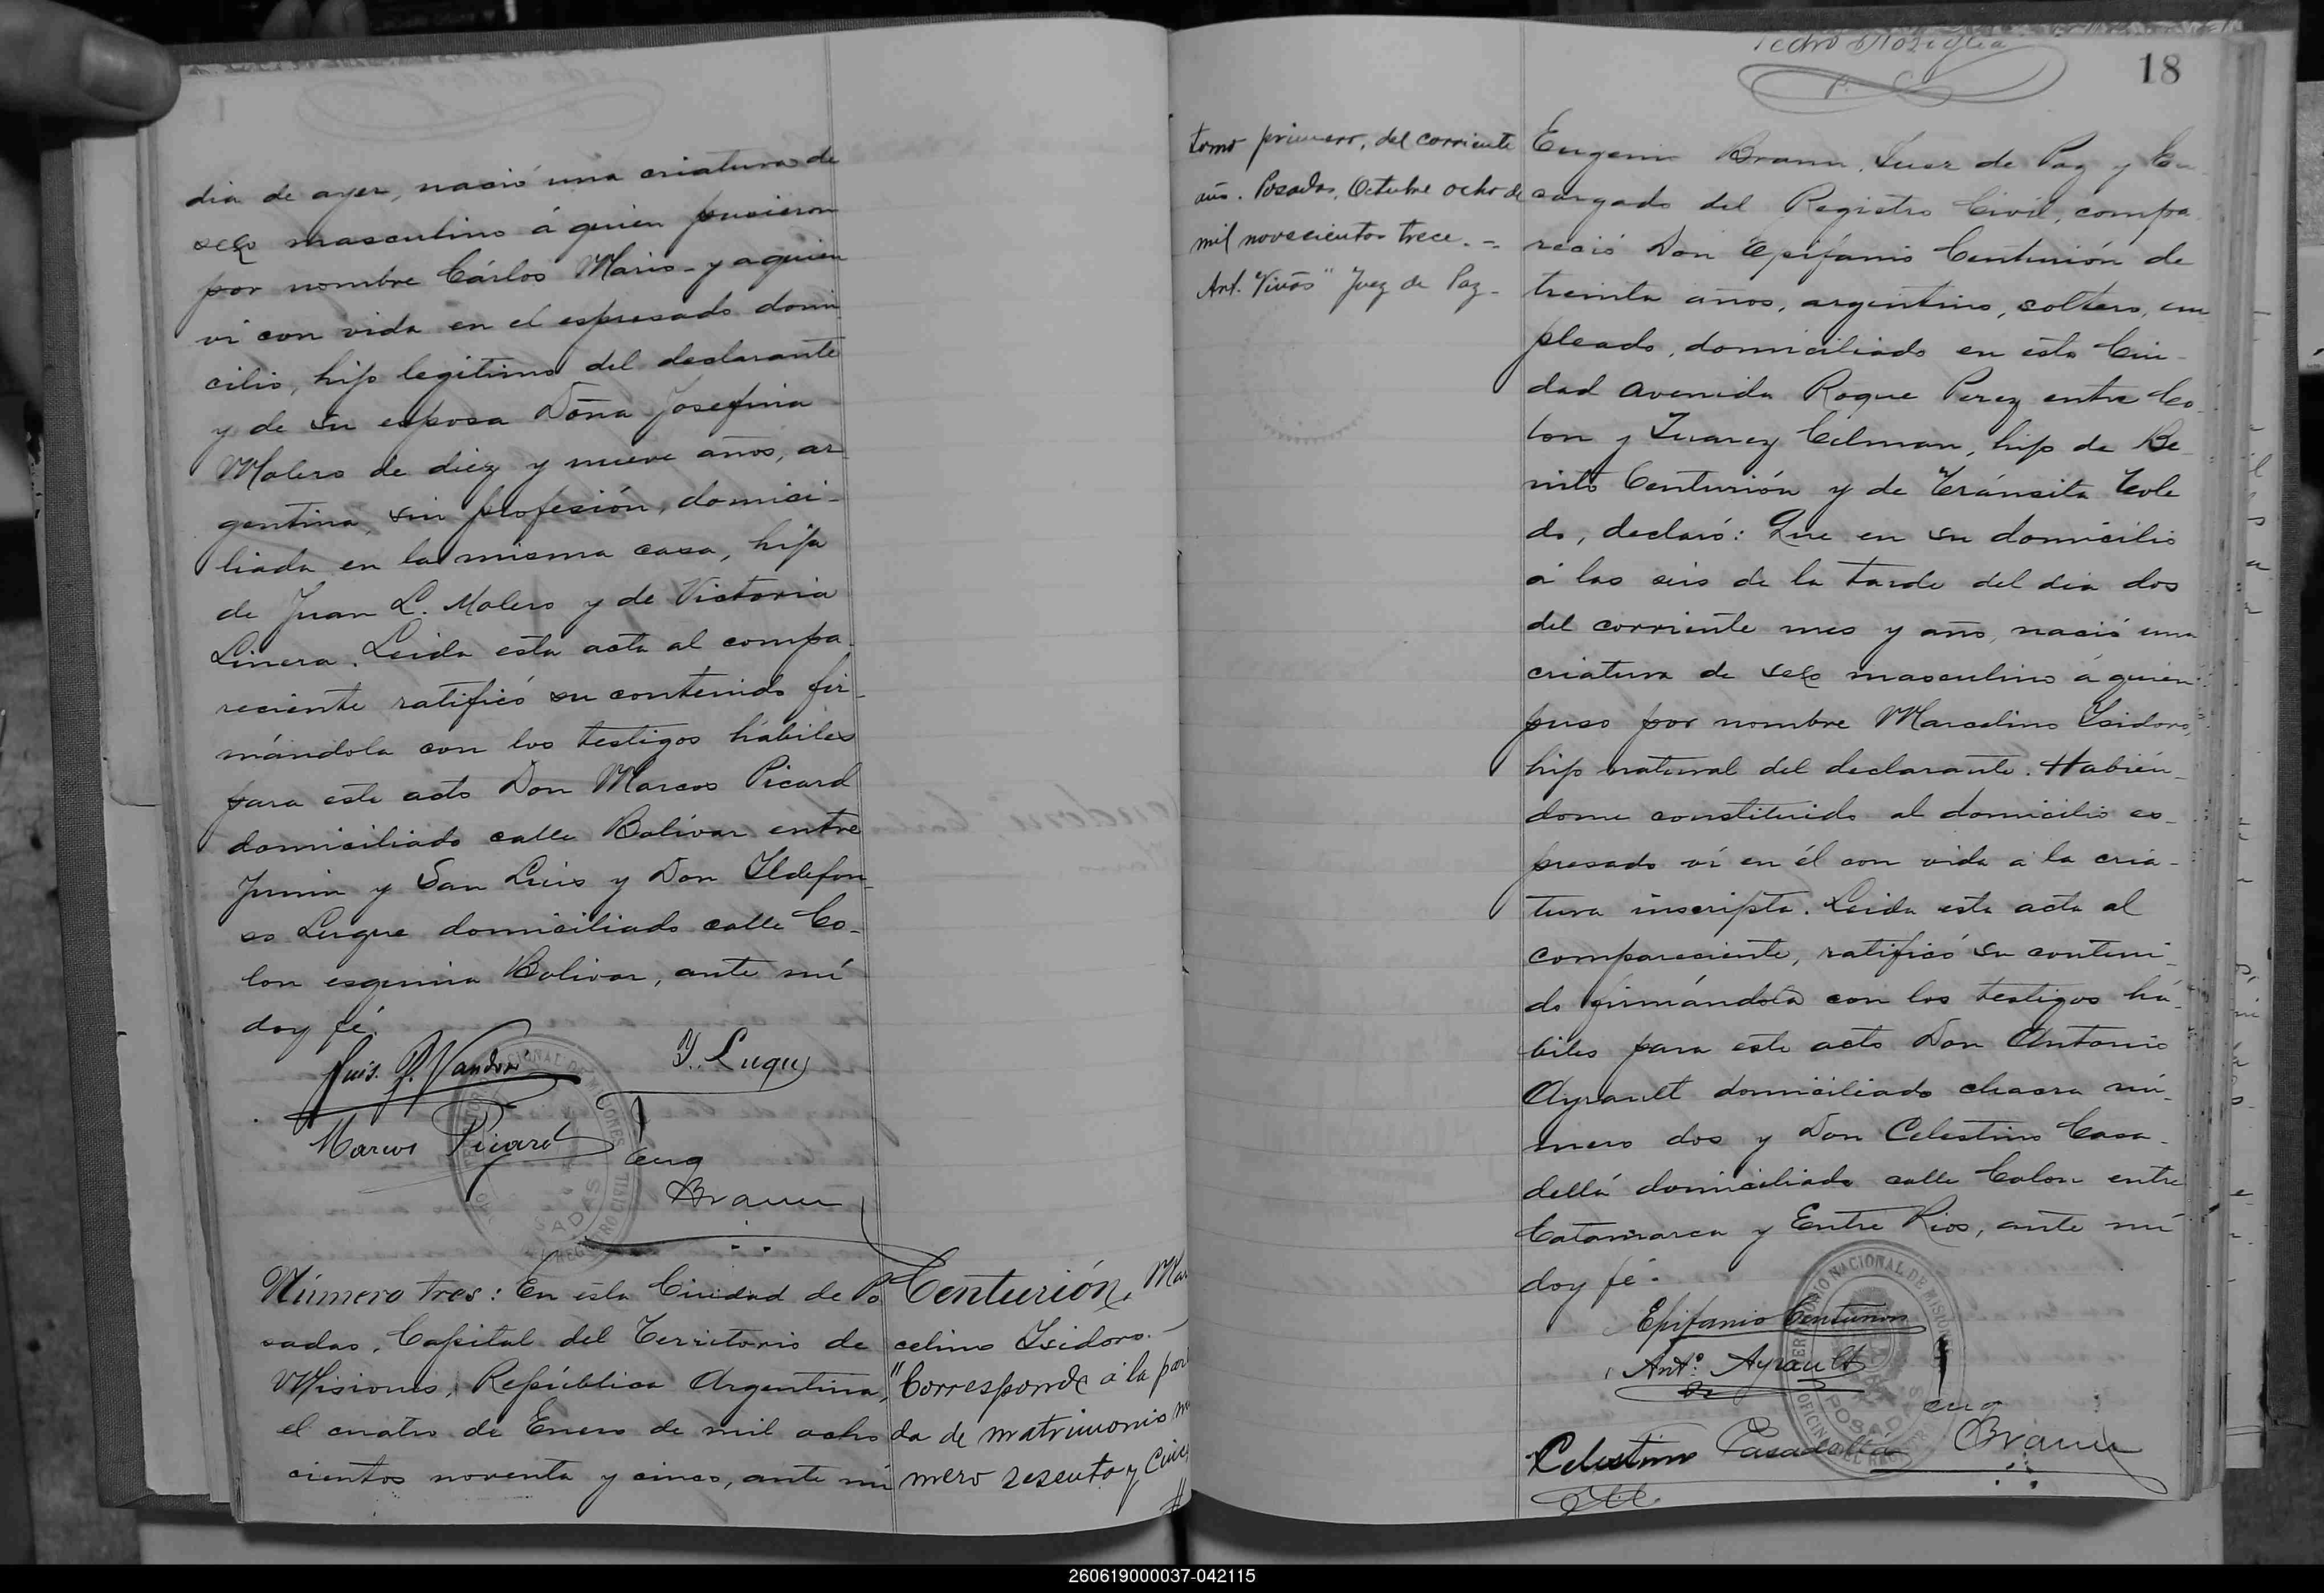 dia de ayer, nació una criatura de
sexo masculino á quien pusieron
por nombre Cárlos Mario - y a quien
vi con vida en el espresado domi
cilio, hijo legítimo del declarante
y de su esposa Doña Josefina
Molero de diez y nueve años, ar
gentina, sin profesión, domici-
liada en la misma casa, hija
de Juan L. Molero y de Victoria
Linera. Leida esta acta al compa
reciente ratificó su contenido fir-
mándola con los testigos hábiles
para este acto Don Marcos Picard
domiciliado calle Bolívar entre
Junin y San Luis y Don Ildefon-
so Luque domiciliado calle Co-
lon esquina Bolivar, ante mí
doy fé.
Luis P. Vandoni
Y. Luque
Marcos Picard
Eug
Braun
Número tres: En esta Ciudad de Po
sadas, Capital del Territorio de
Misiones, República Argentina,
el cuatro de Enero de mil ocho
cientos noventa y cinco, ante mi
Centurión, Mar
celino Isidoro.-
"Corresponde á la parti
da de matrimonio nú
mero sesenta y cinco
tomo primero, del corriente
año. Posadas, Octubre ocho de
mil novecientos trece. -
Ant. Viñas" Juez de Paz -
18
Eugenio Braun, Juez de Paz y En
cargado del Registro Civil, compa
reció Don Epifanio Centurión de
treinta años, argentino, soltero, em
pleado, domiciliado en esta Ciu-
dad avenida Roque Perez entre Co-
lon y Juarez Celman, hijo de Be-
nito Centurión y de Tránsita Tole
do, declaró: Que en su domicilio
á las seis de la tarde del dia dos
del corriente mes y año, nació una
criatura de sexo masculino á quien
puso por nombre Marcelino Ysidoro,
hijo natural del declarante. Habién-
dome constituido al domicilio es-
presado ví en él con vida á la cria-
tura inscripta. Leida esta acta al
compareciente, ratificó su conteni-
do firmándola con los testigos há-
biles para este acto Don Antonio
Ayrault domiciliado chacra nú-
mero dos y Don Celestino Casa-
dellá domiciliado calle Colon entre
Catamarca y Entre Rios, ante mí
doy fé.
Epifanio Centurion
Ant.º Ayrault
Eug
Braun
Celestino Casadellá
260619000037-042115